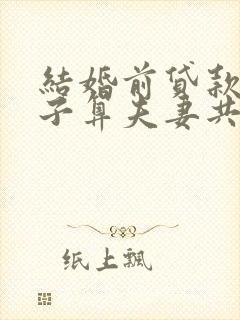 結婚前贷款
子算夫妻共
纸上飘